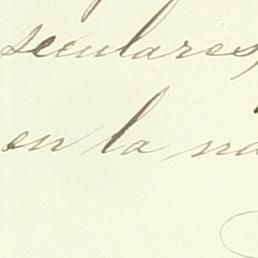 seculares,
en la na